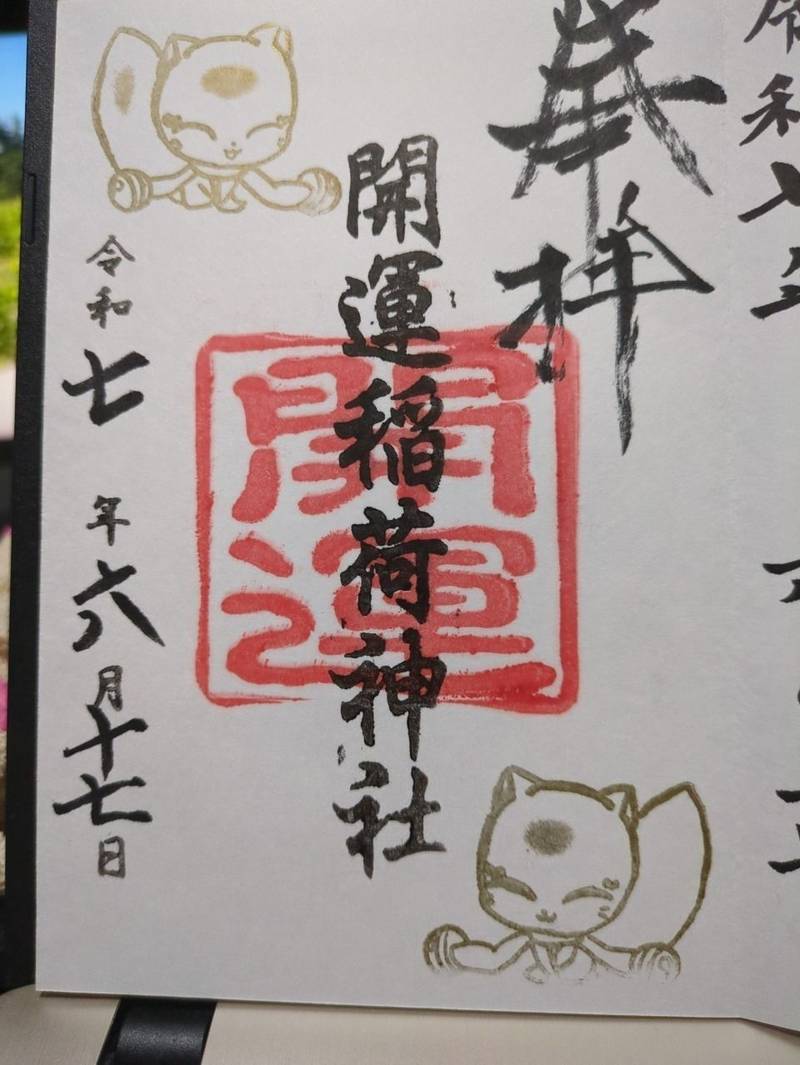 令和七年
奉拝
開運稲荷神社
開運
令和七年六月十七日